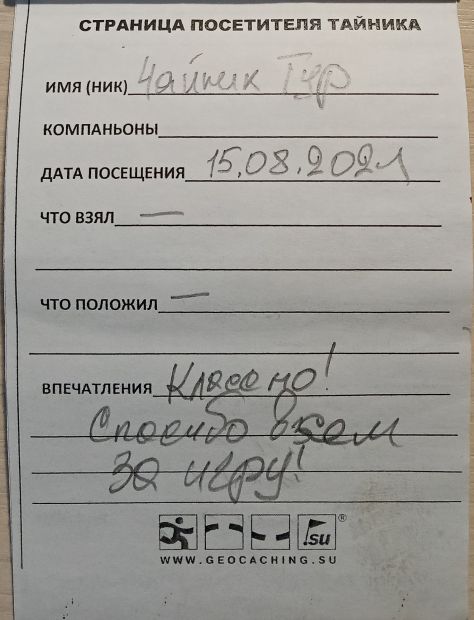 СТРАНИЦА ПОСЕТИТЕЛЯ ТАЙНИКА
ИМЯ (НИК) Чайник Тур
КОМПАНЬОНЫ
ДАТА ПОСЕЩЕНИЯ 15.08.2021
ЧТО ВЗЯЛ —
ЧТО ПОЛОЖИЛ —
ВПЕЧАТЛЕНИЯ Классно!
Спасибо всем
за игру!
.su ®
WWW.GEOCACHING.SU